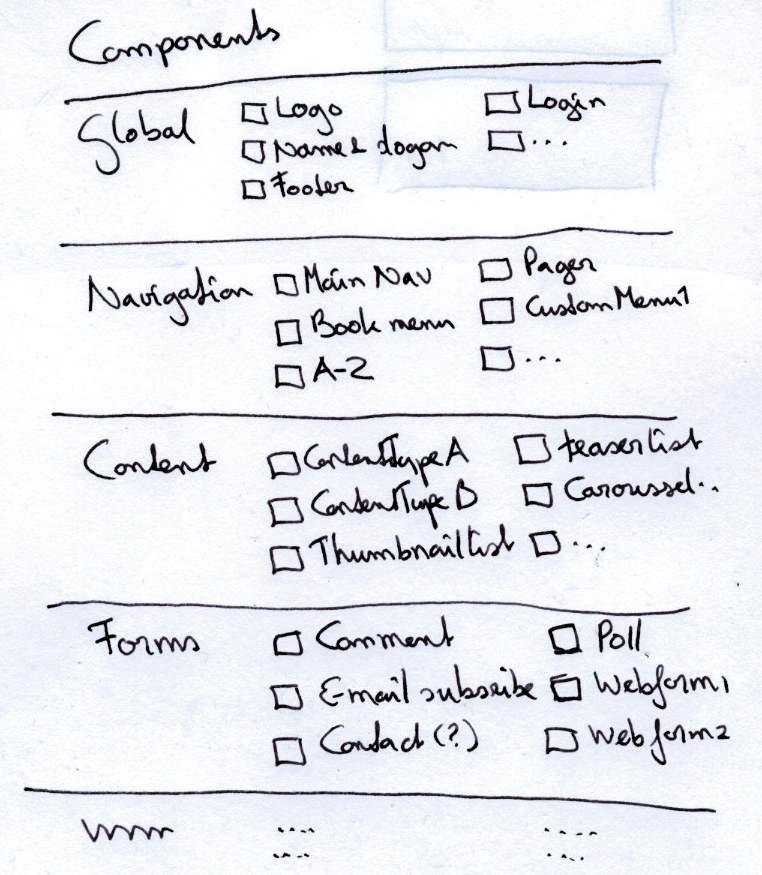 Components
Global
Logo
Login
Name & slogan
...
Footer
Navigation
Main Nav
Pager
Book menu
CustomMenu1
A-Z
...
Content
ContentType A
teaser list
ContentType B
Caroussel..
Thumbnail list
...
Forms
Comment
Poll
E-mail subscribe
Webform1
Contact (?)
Webform2